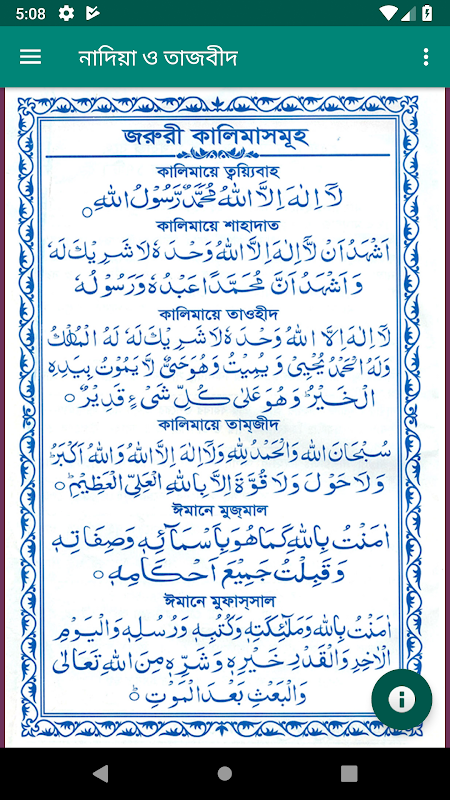 5:08
নাদিয়া ও তাজবীদ
জরুরী কালিমাসমূহ
কালিমায়ে ত্বয়্যিবাহ
لَآ اِلٰهَ اِلَّا اللهُ مُحَمَّدٌ رَّسُوْلُ اللهِ
কালিমায়ে শাহাদাত
اَشْهَدُ اَنْ لَّآ اِلٰهَ اِلَّا اللهُ وَحْدَهٗ لَا شَرِيْكَ لَهٗ
وَ اَشْهَدُ اَنَّ مُحَمَّدًا عَبْدُهٗ وَرَسُوْلُهٗ
কালিমায়ে তাওহীদ
لَآ اِلٰهَ اِلَّا اللهُ وَحْدَهٗ لَا شَرِيْكَ لَهٗ لَهُ الْمُلْكُ
وَلَهُ الْحَمْدُ يُحْيِىْ وَ يُمِيْتُ وَهُوَ حَىٌّ لَّا يَمُوْتُ بِيَدِهِ
الْخَيْرُ وَهُوَ عَلٰى كُلِّ شَىْءٍ قَدِيْرٌ
কালিমায়ে তামজীদ
سُبْحَانَ اللهِ وَالْحَمْدُ لِلّٰهِ وَلَآ اِلٰهَ اِلَّا اللهُ وَاللهُ اَكْبَرُ
وَلَا حَوْلَ وَلَا قُوَّةَ اِلَّا بِاللهِ الْعَلِىِّ الْعَظِيْمِ
ঈমানে মুজ্মাল
اٰمَنْتُ بِاللهِ كَمَا هُوَ بِاَسْمَآئِهٖ وَصِفَاتِهٖ
وَ قَبِلْتُ جَمِيْعَ اَحْكَامِهٖ
ঈমানে মুফাস্সাল
اٰمَنْتُ بِاللهِ وَمَلٰٓئِكَتِهٖ وَكُتُبِهٖ وَ رُسُلِهٖ وَالْيَوْمِ
الْاٰخِرِ وَالْقَدْرِ خَيْرِهٖ وَ شَرِّهٖ مِنَ اللهِ تَعَالٰى
وَالْبَعْثِ بَعْدَ الْمَوْتِ